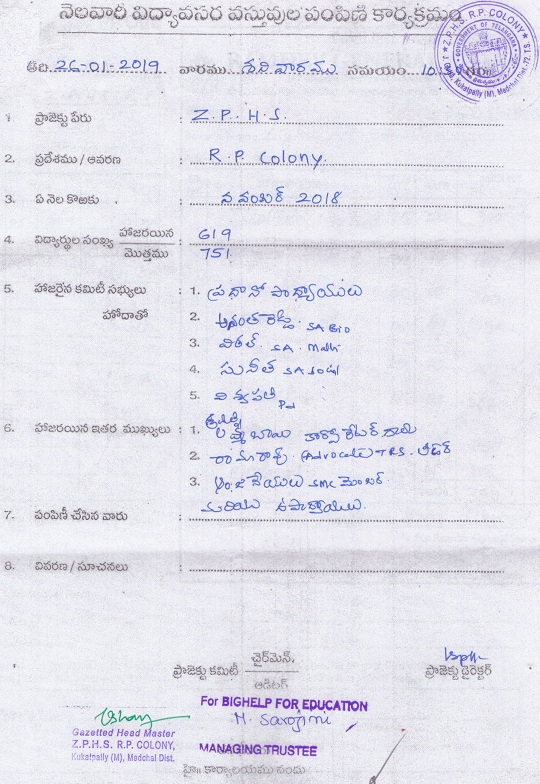 నెలవారి విద్యావసర వస్తువుల పంపిణి కార్యక్రమం
Z.P.H.S. R.P. COLONY
GOVERNMENT OF TELANGANA
Kukatpally (M), Medchal Dist.
తేది: 26-01-2019 వారము శనివారము సమయం 10.
1. ప్రాజెక్టు పేరు : Z.P.H.S.
2. ప్రదేశము / ఆవరణ : R.P. Colony.
3. ఏ నెల కొఱకు : నవంబర్ 2018
4. విద్యార్థుల సంఖ్య హాజరయిన : 619
మొత్తము 751
5. హాజరైన కమిటీ సభ్యులు : 1. ప్రధానోపాధ్యాయులు
హోదాతో 2. అనంతరెడ్డి. SA Bio
3. విఠల్. SA. Maths
4. సునీత SA Social
5.
6. హాజరయిన ఇతర ముఖ్యులు : 1. శ్రీమతి లక్ష్మీబాయి కార్పోరేటర్ గారు
2. రామారావు (Advocate) TRS. లీడర్
3. SMC మెంబర్
7. పంపిణీ చేసిన వారు : మరియు ఉపాధ్యాయులు.
8. వివరణ / సూచనలు :
ప్రాజెక్టు కమిటీ ఛైర్మెన్.
ఆడిటర్
ప్రాజెక్టు డైరెక్టర్
For BIGHELP FOR EDUCATION
M. Sarojini
MANAGING TRUSTEE
Gazetted Head Master
Z.P.H.S. R.P. COLONY,
Kukatpally (M), Medchal Dist.
కార్యాలయము నందు